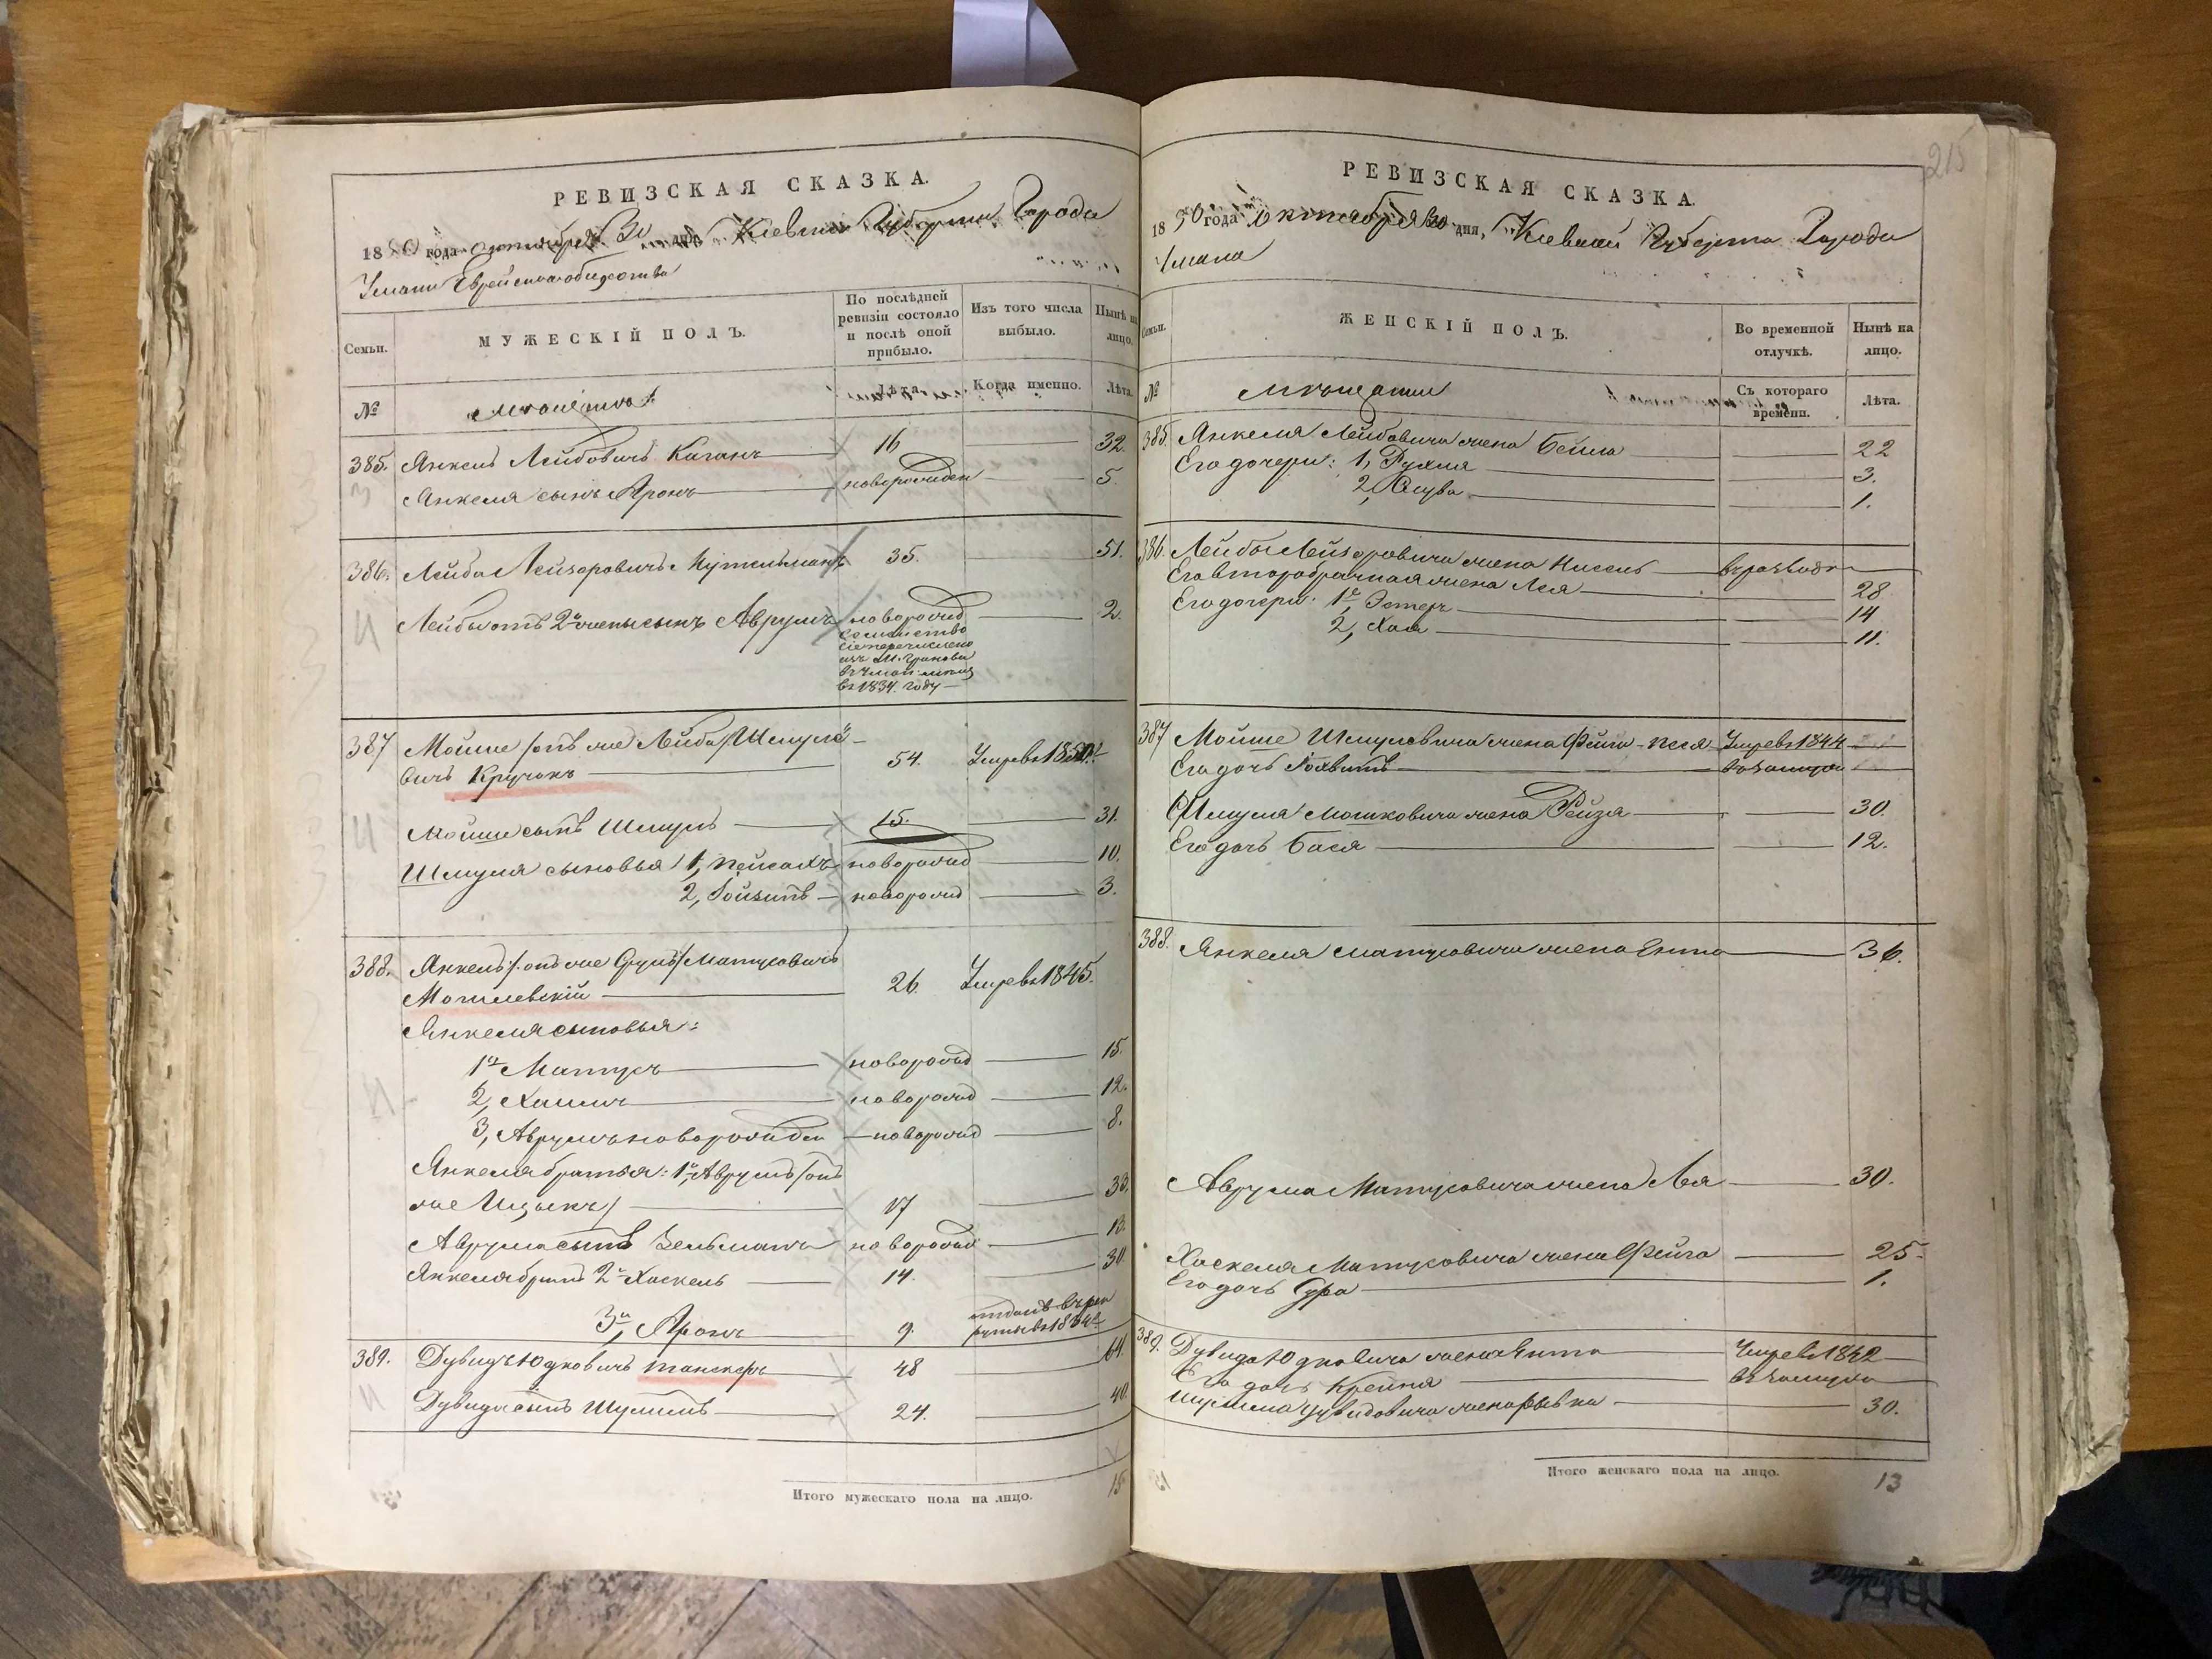 215
РЕВИЗСКАЯ СКАЗКА.
1850 года октября 30 дня, Киевской Губернии Города
Умани Еврейскаго общества
Семьи.
МУЖЕСКІЙ ПОЛЪ.
По послѣдней ревизіи состояло и послѣ оной прибыло.
Изъ того числа выбыло.
Нынѣ на лицо.
№
Мѣщане
Лѣта.
Когда именно.
Лѣта.
385. Янкель Лейбовичъ Каганъ 16 32.
Янкеля сынъ Аронъ новорожден 5.
386. Лейба Лейзеровичъ 35. 51.
Лейбы отъ 2й жены сынъ Аврумъ новорожд 2.
семейство
сіе перечислено
изъ М.
в 1834. году
387 Мойше /онъ же Лейба/ Шмуле-
вичъ Кручокъ 54. Умре в 1850.
Мойши сынъ Шмуль 15. 31.
Шмуля сыновья 1й, Пейсахъ новорожд 10.
2, новорожд 3.
388. Янкель /онъ же Сруль/ Матусовичъ
Могилевскій 26. Умре в 1845.
Янкеля сыновья:
1й Матусъ новорожд 15.
2, Хаимъ новорожд 12.
3, Аврумъ новорожден новорожд 8.
Янкеля братья: 1й, Аврумъ /онъ
же Ицыкъ/ 17 33.
Аврума сынъ Зельманъ новорожд 13.
Янкеля братъ 2й Хаскель 14. 30
3й, Аронъ 9. отданъ в рек
руты в 1834
389. Дувидъ Юдковичъ Танскеръ 48 64.
Дувида сынъ Шулимъ 24. 40.
Итого мужескаго пола на лицо. 15
РЕВИЗСКАЯ СКАЗКА.
1850 года октября 30 дня, Киевской Губернии Города
Умани
Семьи.
ЖЕНСКІЙ ПОЛЪ.
Во временной отлучкѣ.
Нынѣ на лицо.
№
Мѣщанки
Съ котораго времени.
Лѣта.
385. Янкеля Лейбовича жена Бейла 22
Его дочери: 1, Рухля 3.
2, 1.
386. Лейбы Лейзеровича жена Нисель въ разводѣ
Его второбрачная жена Лея 28
Его дочери: 1я, Эстеръ 14
2, Хая 11.
387 Мойше Шмулевича жена Фейга-Песя Умре в 1844
Его дочь въ замуж
Шмуля Мошковича жена Рейзя 30.
Его дочь Бася 12.
388. Янкеля Матусовича жена Ента 36.
Аврума Матусовича жена Лея 30.
Хаскеля Матусовича жена Фейга 25.
Его дочь Сура 1.
389. Дувида Юдковича жена Ента Умре в 1842
Его дочь Крейня въ замуж
Шулима Дувидовича жена Рывка 30.
Итого женскаго пола на лицо. 13